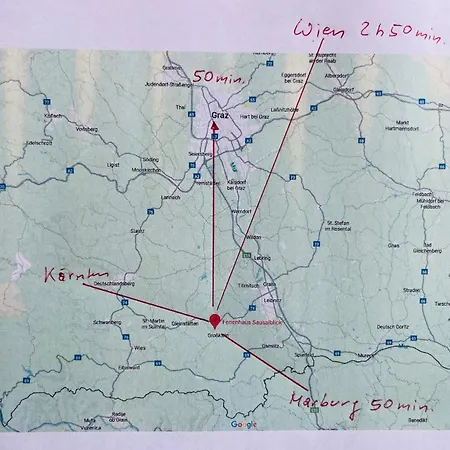 Wien 2 h 50 min.
50 min.
Judendorf-Straßengel
Eggersdorf
bei Graz
St. Ruprecht
an der Raab
Albersdorf
Gleisdorf
Thal
Graz
Hart bei Graz
Laßnitzhöhe
Köflach
Voitsberg
Edelschrott
Markt
Hartmannsdorf
Ligist
Söding
Mooskirchen
Seiersberg
Premstätten
Kalsdorf
bei Graz
Mur
Lannach
Feldbach
Mühldorf bei
Feldbach
Werndorf
St. Stefan
im Rosental
Stainz
Wildon
Gnas
Bad
Gleichenberg
Lebring
Kärnten
Deutschlandsberg
Tillmitsch
Gralla
Leibnitz
Straden
St. Martin
im Sulmtal
Gleinstätten
Ferienhaus Sausalblick
Schwanberg
Großklein
Deutsch Goritz
Wies
Gamlitz
Spielfeld
Mureck
Mur
Eibiswald
Marburg 50 min.
Muta
Vuzenica
Radlje
ob Dravi
Google
Benedikt